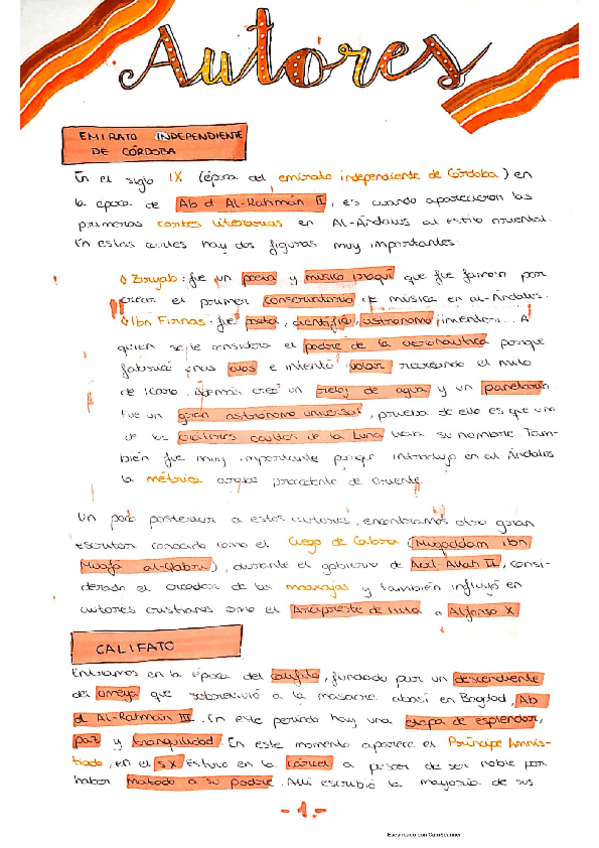 Autores
EMIRATO INDEPENDIENTE
DE CÓRDOBA
En el siglo IX (época del emirato independiente de Córdoba) en
la época de Ab d Al-Rahmán II, es cuando aparecieron las
primeras cortes literarias en Al-Ándalus al estilo oriental.
En estas cortes hay dos figuras muy importantes:
Ziryab: fue un poeta y músico iraquí que fue famoso por
crear el primer conservatorio de música en al-Ándalus.
Ibn Firnas: fue poeta, científico, astrónomo, inventor... A
quien se le considera el padre de la aeronáutica porque
fabricó unas alas e intentó volar recreando el mito
de Ícaro. Además creó un reloj de agua y un planetario
Fue un gran astrónomo universal, prueba de ello es que uno
de los cráteres ocultos de la Luna lleva su nombre. Tam-
bién fue muy importante porque introdujo en al Ándalus
la métrica árabe procedente de oriente.
Un poco posterior a estos autores, encontramos otro gran
escritor conocido como el Ciego de Cabra (Muqaddam ibn
Muafa al-Qabri), durante el gobierno de Abd-Allah II, consi-
derado el creador de las moaxajas y también influyó en
autores cristianos como el Arcipreste de Hita o Alfonso X.
CALIFATO
Entramos en la época del califato, fundado por un descendiente
del omeya que sobrevivió a la masacre abasí en Bagdad, Ab
d Al-Rahmán III. En este periodo hay una etapa de esplendor,
paz y tranquilidad. En este momento aparece el Príncipe Amnis-
tiado, en el s X estuvo en la cárcel a pesar de ser noble por
haber matado a su padre. Allí escribió la mayoría de sus
- 1 -
Escaneado con CamScanner